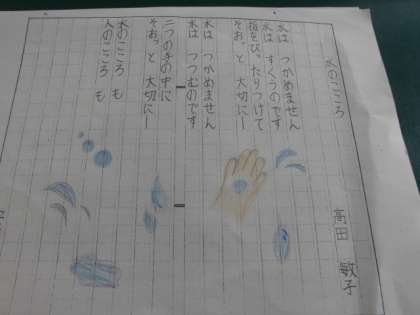 水のこころ
高田 敏子
水は つかめません
水は すくうのです
指をぴったりつけて
そおっと 大切にー
水は つかめません
水は つつむのです
二つの手の中に
そおっと 大切にー
水のこころ も
人のこころ も